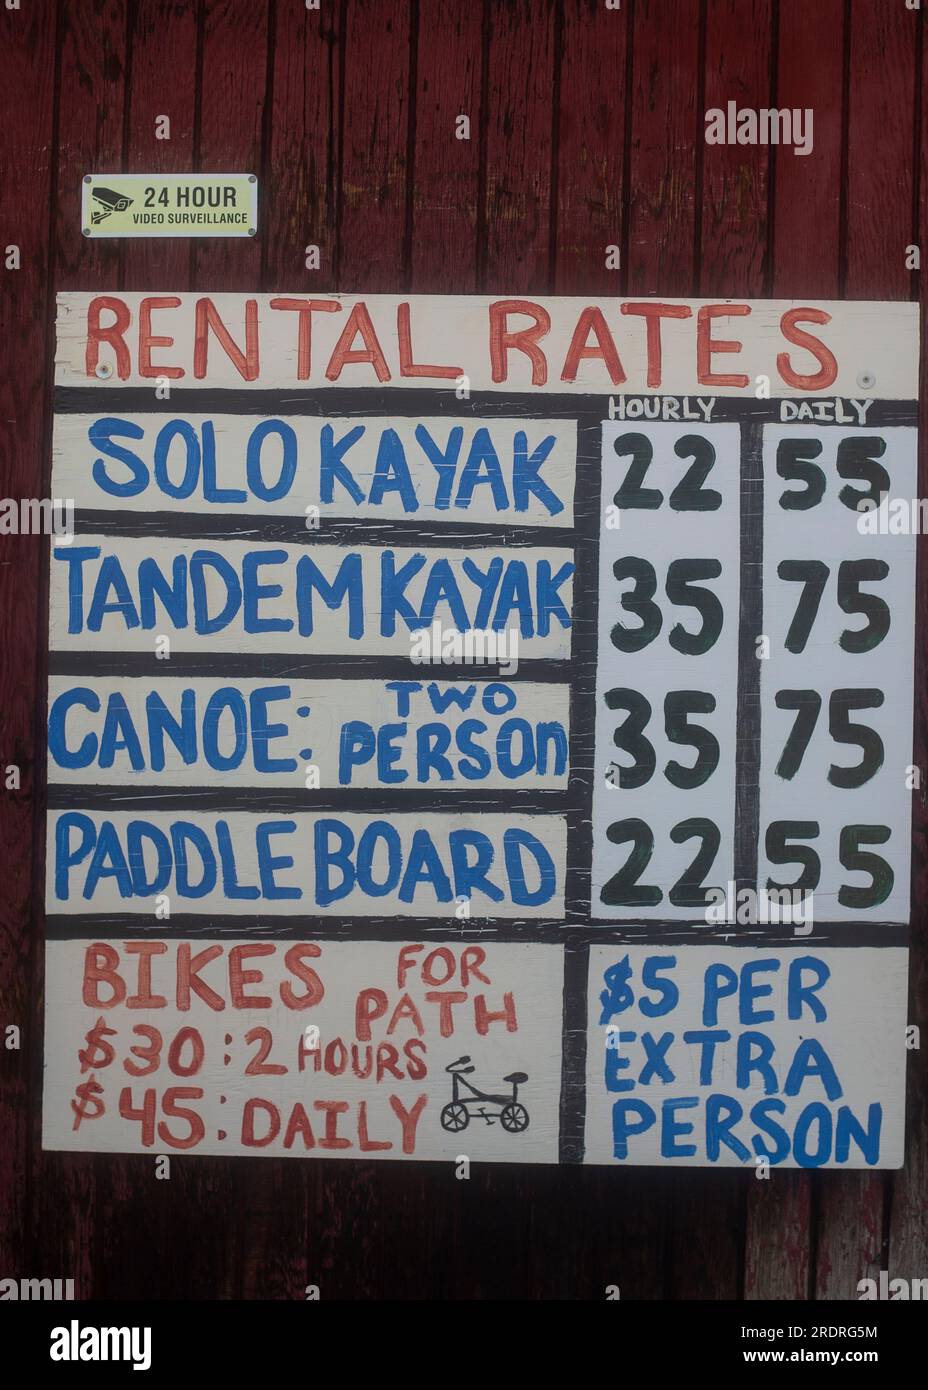 24 HOUR
VIDEO SURVEILLANCE
RENTAL RATES
HOURLY DAILY
SOLO KAYAK 22 55
TANDEM KAYAK 35 75
CANOE: TWO PERSON 35 75
PADDLE BOARD 22 55
BIKES FOR PATH
$30: 2 HOURS
$45: DAILY
$5 PER
EXTRA
PERSON
alamy
Image ID: 2RDRG5M
www.alamy.com